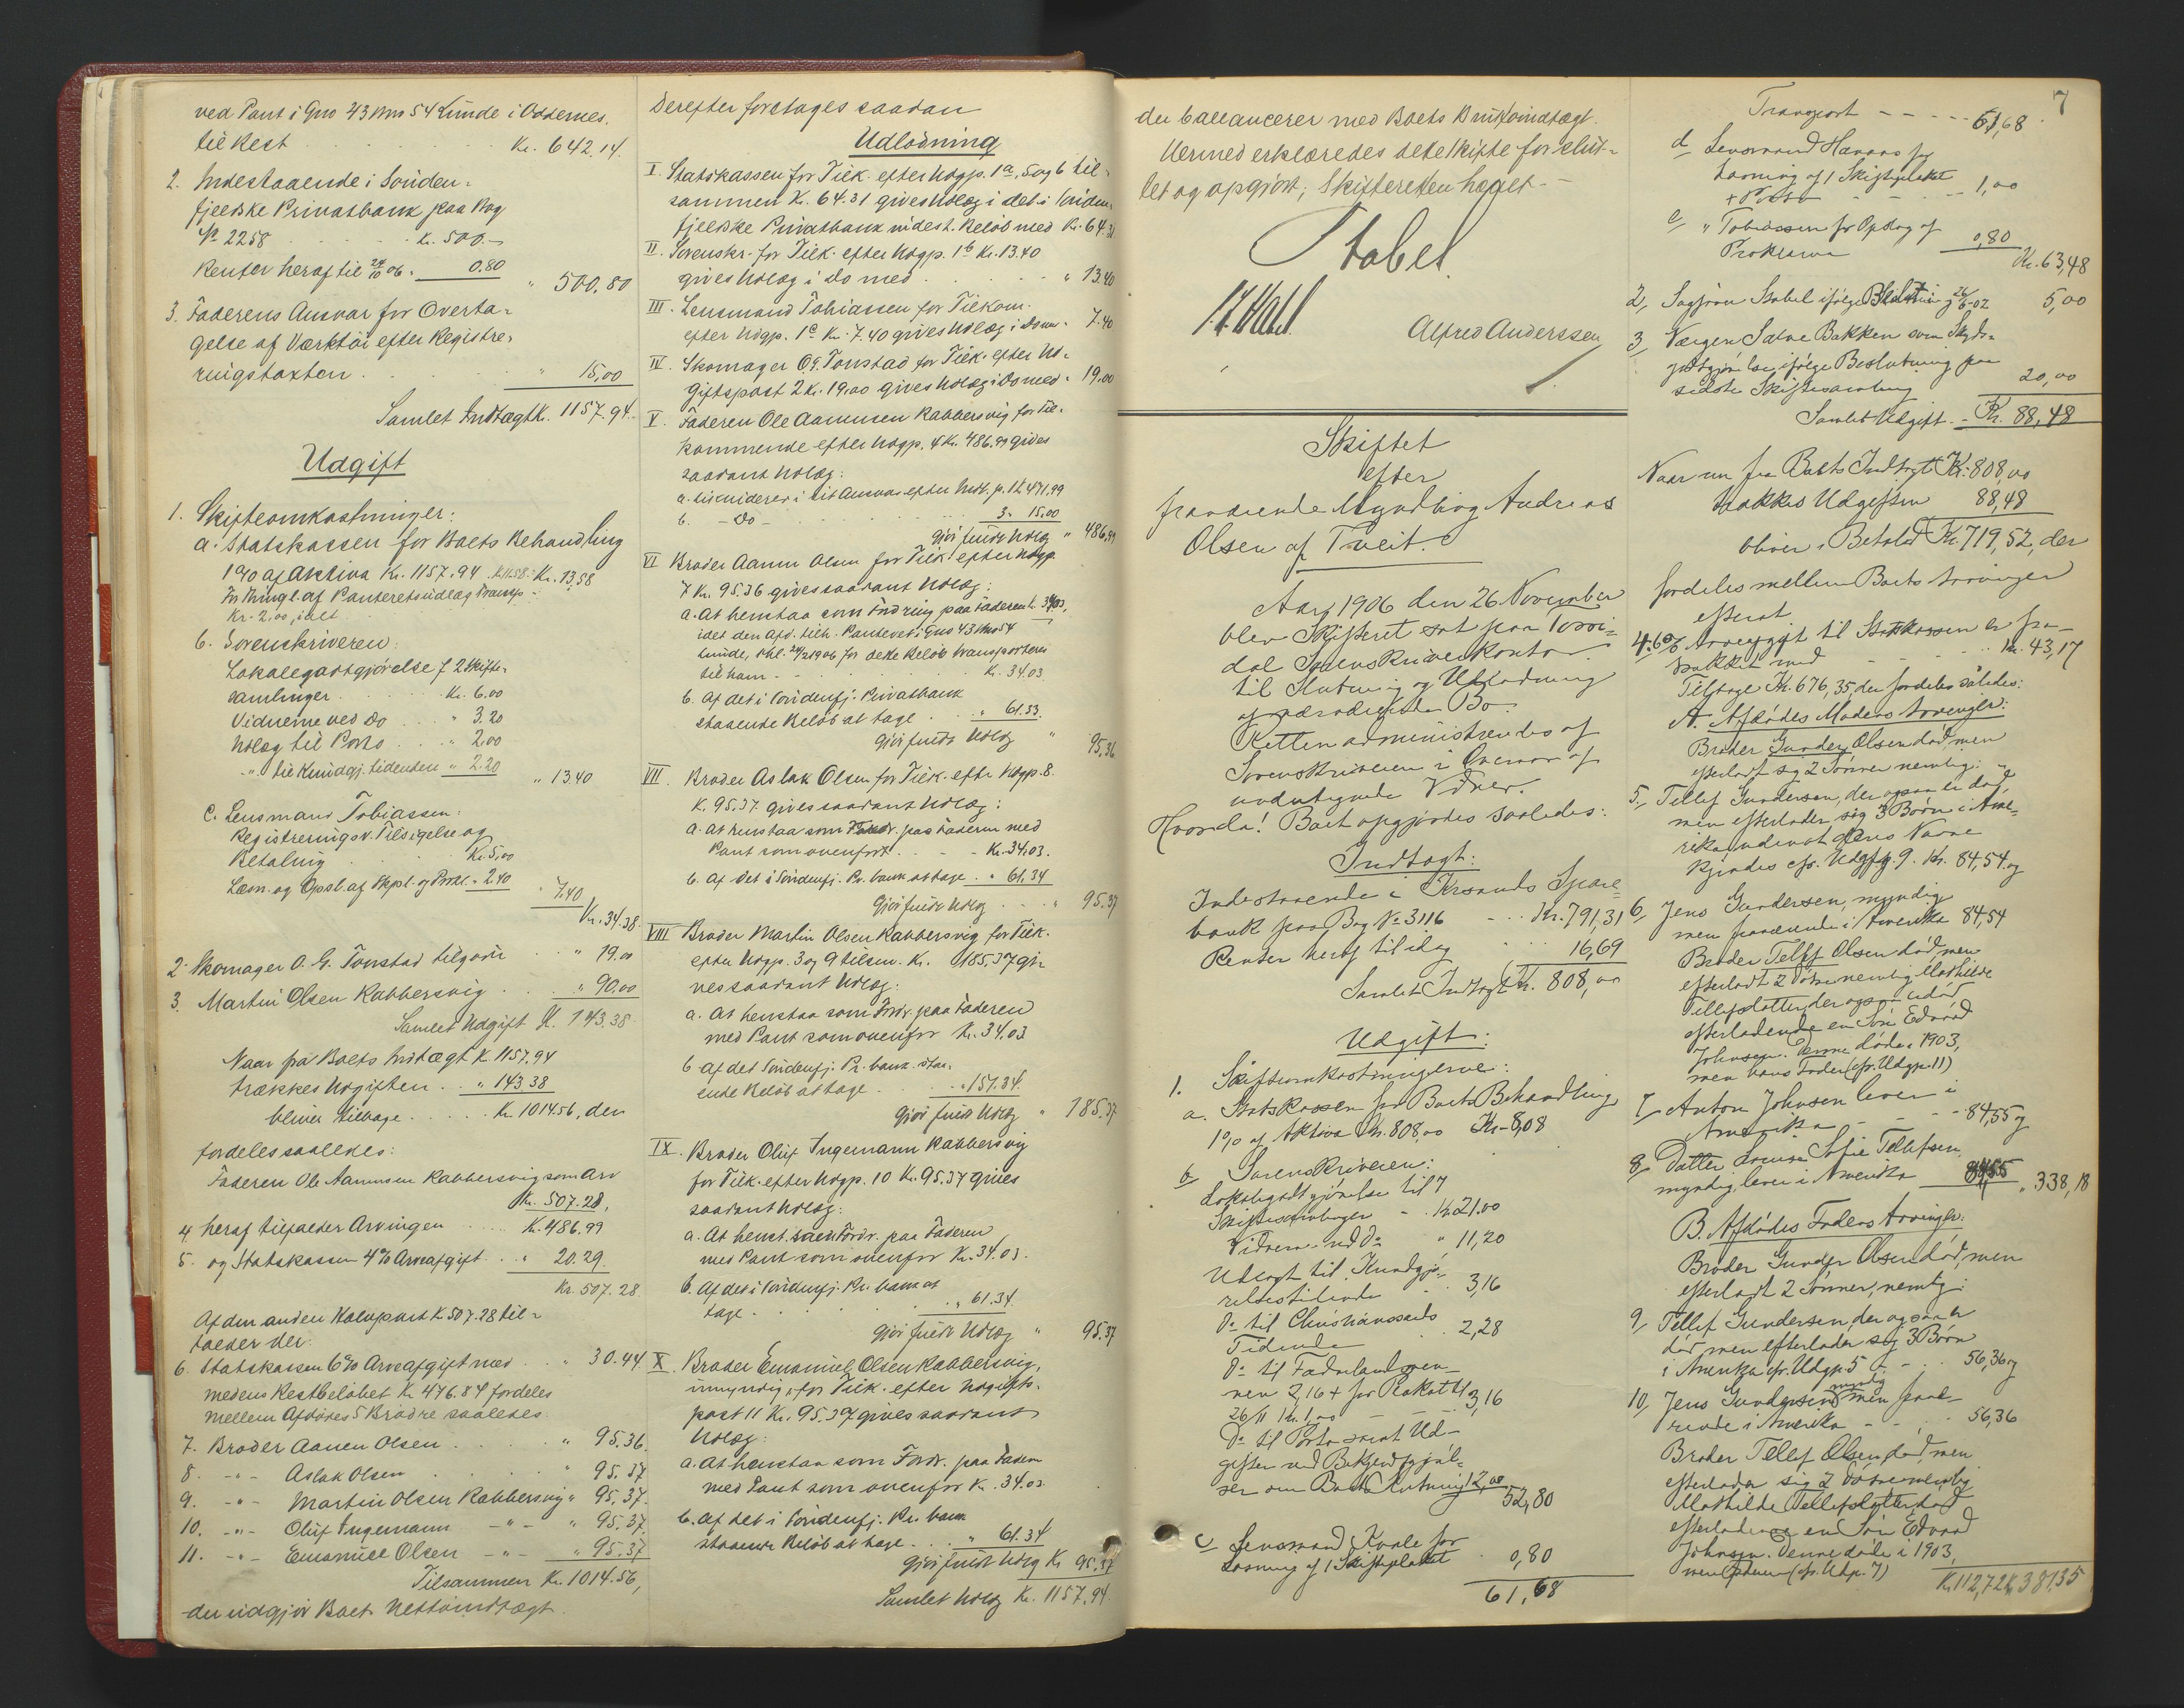 ved Pant i Gno 43 Bno 54 Lunde i Oddernes.
til Rest Kr. 642.14.
2. Indestaaende i Sönden-
fjeldske Privatbank paa Bog
№ 2258 Kr. 500.-
Renter heraf til 24/10 06. 0.80
" 500.80
3. Faderens Ansvar for Overta-
gelse af Værktöi efter Registre-
ringstaxten " 15,00
Samlet Indtægt Kr. 1157.94.
Udgift
1. Skifteomkostninger:
a. Statskassen for Boets Behandling
1% af Aktiva Kr. 1157.94 Kr. 11.58. Kr. 13,58
Kr. 2.00, ialt
b. Sorenskriveren:
Lokalegodtgjörelse f. 2 Skifte-
samlinger Kr. 6.00
Vidnerne ved Do " 3.20
Udlæg til Porto " 2.00
" til Kundgj. tidenden " 2.20
" 13.40
c. Lensmand Tobiassen:
Registreringsv. Tilsigelse og
Betaling Kr. 5,00
Læsn. og Opsl. af Skpl. og Prokl. " 2.40
" 7.40
Kr. 34.38.
2. Skomager O. G. Tonstad tilgode " 19.00
3. Martin Olsen Kabbersvig " 90.00
Samlet Udgift K. 143.38
Naar fra Boets Indtægt K. 1157.94
trækkes Udgiften " 143.38
bliver tilbage Kr. 1014.56, der
fordeles saaledes:
Faderen Ole Aanunsen Kabbersvig som Arv
Kr. 507.28,
4. heraf tilfalder Arvingen K. 486.99
5. og Statskassen 4% Arveafgift " 20.29.
Kr. 507.28
Af den anden Halvpart K. 507.28 til-
falder der:
6. Statskassen 6% Arveafgift med " 30.44.
medens Restbelöbet Kr. 476.84 fordeles
mellem Afdödes 5 Brödre saaledes:
7. Broder Aanen Olsen " 95.36.
8. -"- Aslak Olsen " 95.37
9. -"- Martin Olsen Kabbersvig " 95.37.
10. -"- Oluf Ingemann -"- " 95.37.
11. -"- Emanuel Olsen -"- " 95.37
Tilsammen Kr. 1014.56,
der udgjör Boets Nettoindtægt.
Derefter foretages saadan
Udlodning
I. Statskassen for Tilk. efter Udgp. 1a, 5 og 6 til-
sammen K. 64.31 gives Udlæg i det i Sönden-
fjeldske Privatbank indest. Belöb med Kr. 64.31
II. Sorenskr. for Tilk. efter Udgp. 1b Kr. 13.40
gives Udlæg i Do med " 13.40
III. Lensmand Tobiassen for Tilkom.
efter Udgp. 1c Kr. 7.40 gives Udlæg i Do med " 7.40
IV. Skomager O. G. Tonstad for Tilk. efter Ud-
giftspost 2 Kr. 19.00 gives Udlæg i Do med " 19.00
V. Faderen Ole Aanunsen Kabbersvig for Til-
kommende efter Udgp. 4 Kr. 486.99 gives
saadant Udlæg:
a. likviderer i sit Ansvar efter Indt. p. 1 K. 471,99
b. - Do - 3 " 15.00
Gjör fuldt Udlæg " 486.99
VI Broder Aanen Olsen for Tilk. efter Udgp.
7 Kr. 95.36 gives saadant Udlæg:
a. At henstaa som Fordring paa Faderen K. 34.03,
idet den Afd. tilh. Panteret i Gno 43 Bno 54
Lunde, for dette Belöb transporteres
til ham Kr. 34.03
b. Af det i Söndenfj. Privatbank
staaende Belöb at tage " 61.33.
Gjör fuldt Udlæg " 95.36
VII. Broder Aslak Olsen for Tilk. efter Udgp. 8.
K. 95.37 gives saadant Udlæg:
a. At henstaa som Fordr. paa Faderen med
Pant som ovenfor Kr. 34.03.
b. Af det i Söndenfj. Pr. bank at tage " 61.34
Gjör fuldt Udlæg " 95.37
VIII Broder Martin Olsen Kabbersvig for Tilk.
efter Udgp. 3 og 9 tilsam. Kr. 185.37 gi-
ves saadant Udlæg:
a. At henstaa som Fordr. paa Faderen
med Pant som ovenfor Kr. 34.03
b. Af det Söndenfj. Pr. bank staa-
ende Belöb at tage " 151.34.
Gjör fuldt Udlæg " 185.37
IX. Broder Oluf Ingemann Kabbersvig
for Tilk. efter Udgp. 10 Kr. 95.37 gives
saadant Udlæg:
a. At henst. som Fordr. paa Faderen
med Pant som ovenfor Kr. 34.03.
b. Af det i Söndenfj. Pr. bank at
tage " 61.34
Gjör fuldt Udlæg " 95.37
X. Broder Emanuel Olsen Kabbersvig,
umyndig, for Tilk. efter Udgifts-
post 11 Kr. 95.37 gives saadant
Udlæg:
a. At henstaa som Fordr. paa Faderen
med Pant som ovenfor Kr. 34.03
b. Af det i Söndenfj. Pr. bank
staaende Belöb at tage " 61.34
Gjör fuldt Udlæg Kr. 95.37
Samlet Udlæg Kr. 1157.94.
der ballancerer med Boets Bruttoindtægt.
Hermed erklæredes dette Skifte for slut-
tet og opgjort; Skifteretten hævet.-
Stabel
Alfred Anderssen
Skiftet
efter
fraværende Myndling Andreas
Olsen af Tveit.
Aar 1906 den 26 November
blev Skifteret sat paa Torri-
dal Sorenskriverkontor
til Slutning og Udlodning
af nærværende Bo.
Retten administreredes af
Sorenskriveren i Overvær af
undertegnede Vidner.
Hvorda! Boet opgjordes saaledes:
Indtægt:
Indestaaende i Krsands Spare-
bank paa Bog № 3116 Kr. 791,31
Renter heraf til idag 16,69
Samlet Indtægt Kr. 808,00
Udgift:
1. Skifteomkostningerne:
a. Statskassen for Boets Behandling
1% af Aktiva Kr. 808,00 Kr. 8,08
b Sorenskriveren:
Lokalegodtgjörelse til 7
Skiftesamlinger Kr. 21.00
Vidnerne ved Do " 11,20
Udlagt til Kundgjö-
relsestidende 3,16
Do til Christianssands
Tidende 2,28
Do til Fædrelandsven-
nen 2,16 + for Plakat
26/11 Kr. 1,00 3,16
Do til Porto samt Ud-
gifter ved Bekjendtgjörel-
ser om Boets Slutning 12,00
52,80
c Lensmand Kvale for
Læsning af 1 Skifteplakat 0,80
61,68
7
Transport 61,68
d Lensmand Hanaas for
Læsning af 1 Skifteplakat
+ Porto 1,00
e " Tobiassen for Opslag af
Proklama 0,80
Kr. 63,48
2, Sagförer Stabel ifölge Beslutning 26/6-02 5,00
3, Værgen Salve Bakken som Skyds-
godtgjörelse ifölge Beslutning paa
sidste Skiftesamling 20,00
Samlet Udgift Kr. 88,48
Naar nu fra Boets Indtægt Kr. 808,00
trækkes Udgiften 88,48
bliver i Behold Kr. 719,52, der
fordeles mellem Boets Arvinger
efterat
4. 6% Arveafgift til Statskassen er fra-
trukket med Kr. 43,17
Tilbage Kr. 676,35, der fordeles således:
A. Afdödes Moders Arvinger:
Broder Gunder Olsen död, men
efterladt sig 2 Sönner nemlig:
5, Tellef Gundersen, der ogsaa er död,
men efterlader sig 3 Börn i Ame-
rika, uden at deres Navne
kjendes cfr. Udgp. 9. Kr. 84,54 og
6, Jens Gundersen, myndig
men fraværende i Amerika 84,54
Broder Tellef Olsen död, men
efterladt 2 Dötre nemlig Mathilde
Tellefsdatter, der ogsaa er död
efterladende en Sön Edvard
Johnsen. Denne döde i 1903,
men hans Fader (cfr. Udgp. 11)
7, Anton Johnsen lever i
Amerika 84,55 og
8, Datter Lovise Sofie Tellefsen
myndig, lever i Amerika 84,55 " 338,18
B. Afdödes Faders Arvinger:
Broder Gunder Olsen död, men
efterladt 2 Sönner, nemlig:
9, Tellef Gundersen, der ogsaa er
död men efterlader sig 3 Börn
i Amerika cfr. Udgp. 5 56,36 og
10, Jens Gundersen myndig men fravæ-
rende i Amerika 56,36
Broder Tellef Olsen död, men
efterlader sig 2 Dötre nemlig
Mathilde Tellefsdatter död
efterladende en Sön Edvard
Johnsen. Denne döde i 1903,
men Faderen (cfr. Udgp. 7) K. 112,72 K. 381,35